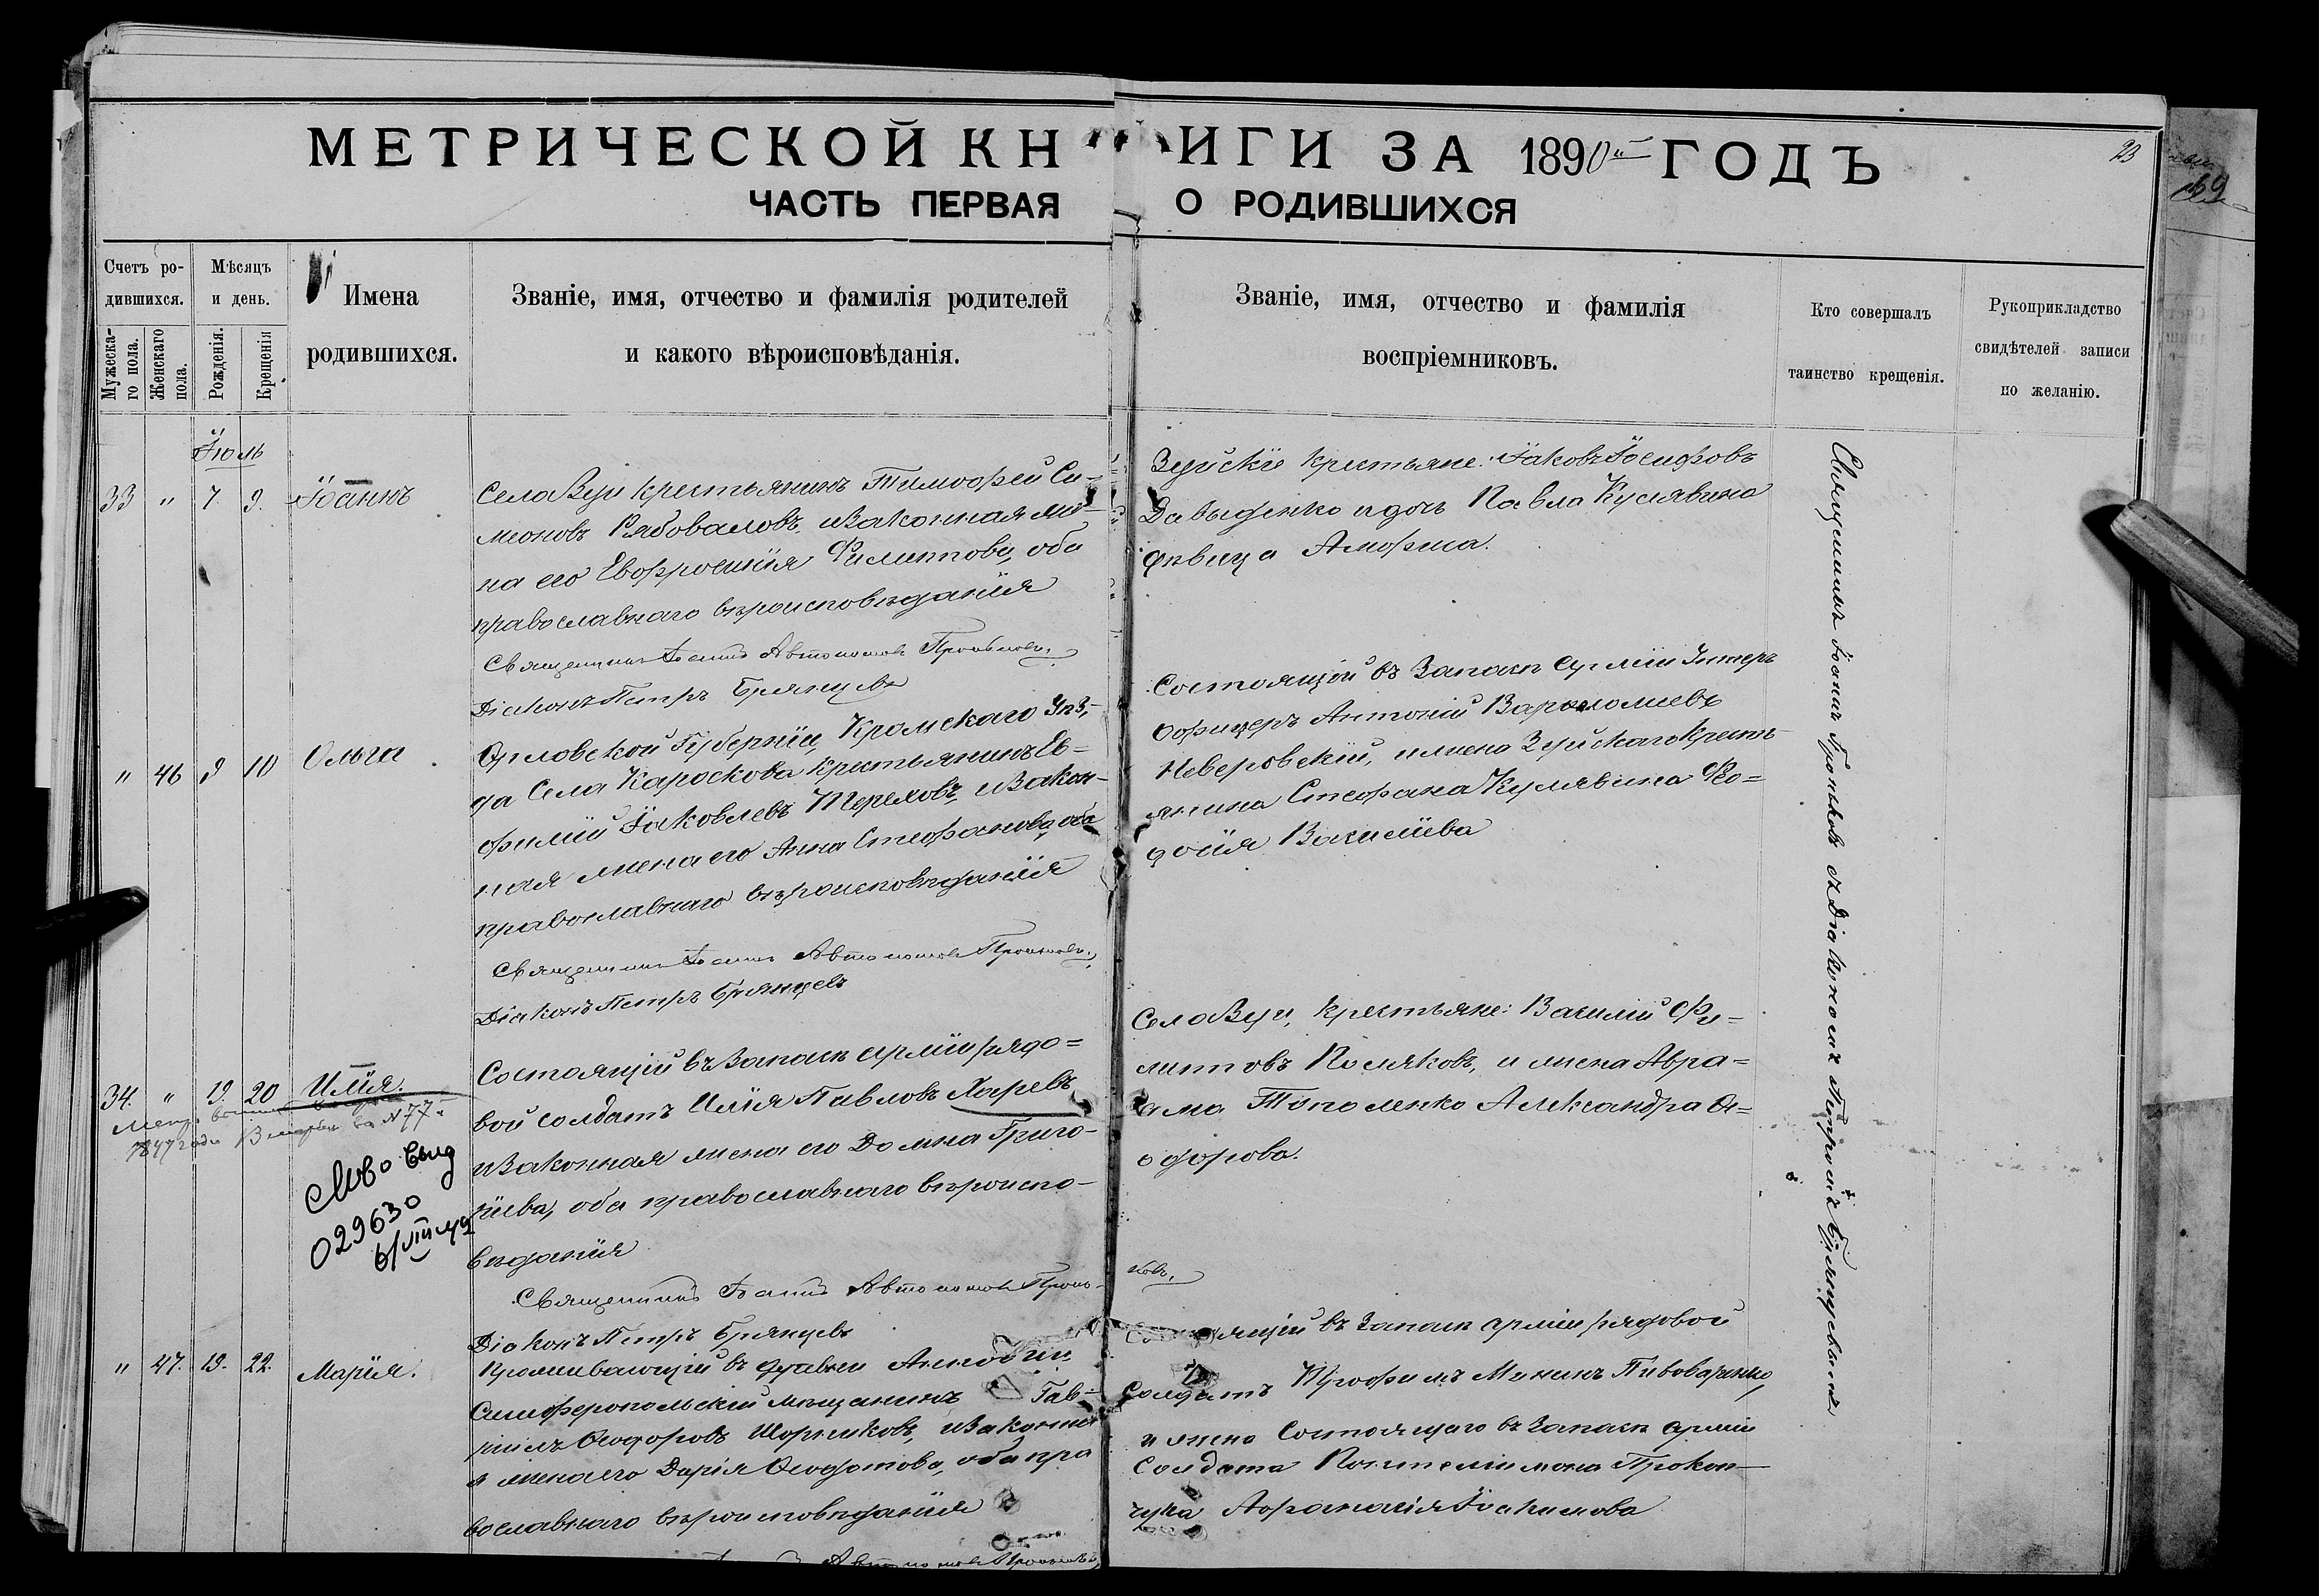 МЕТРИЧЕСКОЙ КНИГИ ЗА 1890й ГОДЪ
23
ЧАСТЬ ПЕРВАЯ О РОДИВШИХСЯ
Счетъ родившихся.
Мужескаго пола.
Женскаго пола.
Мѣсяцъ и день.
Рожденія.
Крещенія
Имена родившихся.
Званіе, имя, отчество и фамилія родителей
и какого вѣроисповѣданія.
Званіе, имя, отчество и фамилія
воспріемниковъ.
Кто совершалъ
таинство крещенія.
Рукоприкладство
свидѣтелей записи
по желанію.
Іюль
33 " 7. 9. Іоаннъ
Села Зуи крестьянинъ Тимофей Си-
меоновъ Рябоваловъ, и законная же-
на его Евфросинія Филиппова, оба
православнаго вѣроисповѣданія
Священникъ Іоаннъ Автономовъ
Діаконъ Петръ Брянцевъ
Зуйскіе крестьяне: Іаковъ Іосифовъ
Давыденко и дочь Павла Кулявина
дѣвица
" 46 9 10 Ольга
Орловской Губерніи, Кромскаго Уѣз-
да Села крестьянинъ Ев-
фимій Іаковлевъ Тереховъ, и закон-
ная жена его Анна Стефанова, оба
православнаго вѣроисповѣданія
Священникъ Іоаннъ Автономовъ
Діаконъ Петръ Брянцевъ
Состоящій въ запасѣ арміи Унтеръ
Офицеръ Антоній Варѳоломіевъ
Неверовскій, и жена Зуйскаго крестъ-
янина Стефана Кулявина Ѳео-
досія Василіева
34. " 19. 20 Илія.
1947 года В №77
029630
Состоящій въ запасѣ арміи рядо=
вой солдатъ Илія Павловъ Харевъ
и законная жена его Домна Григо-
ріева, оба православнаго вѣроиспо-
вѣданія
Священникъ Іоаннъ Автономовъ
Діаконъ Петръ Брянцевъ
Села Зуи, крестьяне: Василій Фи=
липповъ Поляковъ, и жена Авра=
ама Тополенко Александра Ѳе=
одорова.
" 47. 19. 22. Марія.
Проживающій въ деревни
Симферопольскій мѣщанинъ Гав-
ріилъ Ѳеодоровъ и законна-
я жена его Дарія Ѳеодотова, оба пра
вославнаго вѣроисповѣданія
Состоящій въ запасѣ арміи рядовой
Солдатъ Трофимъ Мининъ Пивоваренко,
и жена Состоящаго въ запасѣ арміи
Солдата Пантелиімона Прокоп-
чука Афанасія Іоакимова
Священникъ Іоаннъ съ Діакономъ Петромъ Брянцевымъ